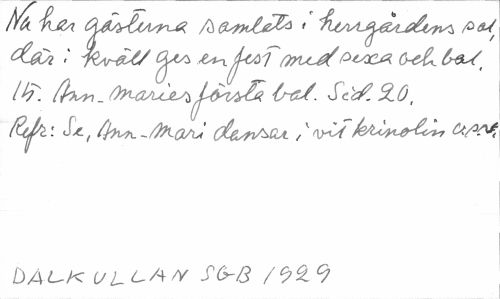 Nu har gästerna samlats i herrgårdens sal,
där i kväll ges en fest med sexa och bal.
15. Ann-Maries första bal. Sid. 20.
Refr: Se, Ann-Mari dansar i vit krinolin
DALKULLAN SGB 1929